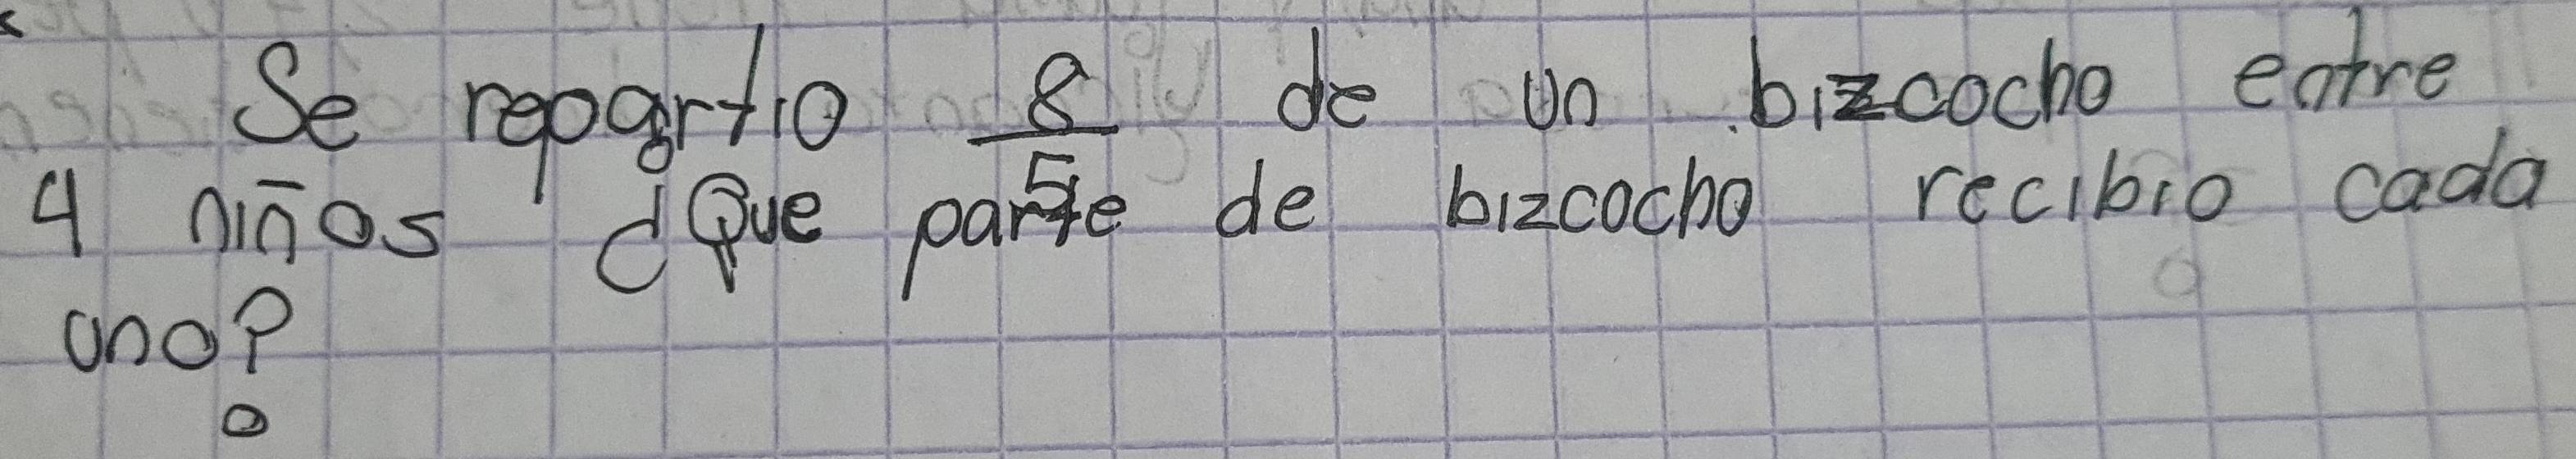 Se repartio 8/5 de un bizcocho entre
4 niños ¿Que parte de bizcocho recibio cada
uno?